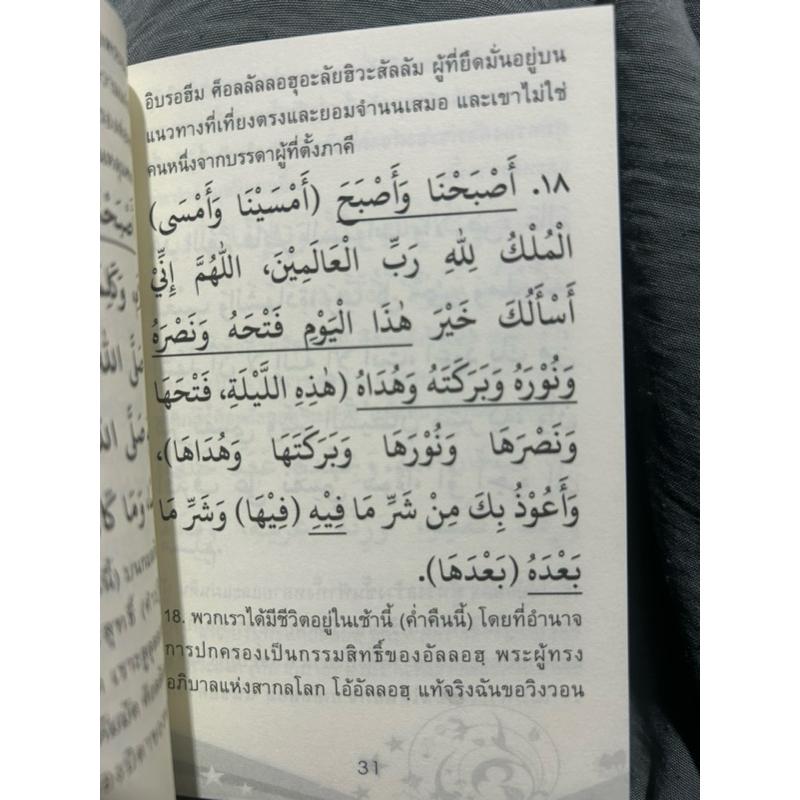 อิบรอฮีม ศ็อลลัลลอฮุอะลัยฮิวะสัลลัม ผู้ที่ยึดมั่นอยู่บน
แนวทางที่เที่ยงตรงและยอมจำนนเสมอ และเขาไม่ใช่
คนหนึ่งจากบรรดาผู้ที่ตั้งภาคี
١٨. أَصْبَحْنَا وَأَصْبَحَ (أَمْسَيْنَا وَأَمْسَى)
الْمُلْكُ لِلّٰهِ رَبِّ الْعَالَمِيْنَ، اللّٰهُمَّ إِنِّيْ
أَسْأَلُكَ خَيْرَ هٰذَا الْيَوْمِ فَتْحَهُ وَنَصْرَهُ
وَنُوْرَهُ وَبَرَكَتَهُ وَهُدَاهُ (هٰذِهِ اللَّيْلَةِ، فَتْحَهَا
وَنَصْرَهَا وَنُوْرَهَا وَبَرَكَتَهَا وَهُدَاهَا)،
وَأَعُوْذُ بِكَ مِنْ شَرِّ مَا فِيْهِ (فِيْهَا) وَشَرِّ مَا
بَعْدَهُ (بَعْدَهَا).
18. พวกเราได้มีชีวิตอยู่ในเช้านี้ (ค่ำคืนนี้) โดยที่อำนาจ
การปกครองเป็นกรรมสิทธิ์ของอัลลอฮฺ พระผู้ทรง
อภิบาลแห่งสากลโลก โอ้อัลลอฮฺ แท้จริงฉันขอวิงวอน
31